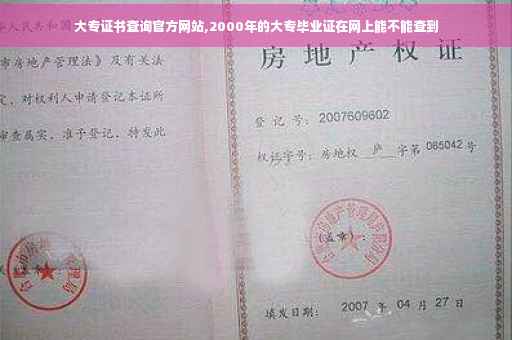 大专证书查询官方网站,2000年的大专毕业证在网上能不能查到
人民共和国
市房地产管理法》及有关法
定，对权利人申请登记本证所
审查属实，准予登记，特发此
房地产权证
登记号：2007609602
权证字号：房地权 庐 字第 085042 号
房地产管理局
(盖章)：
填发日期： 2007 年 04 月 27 日